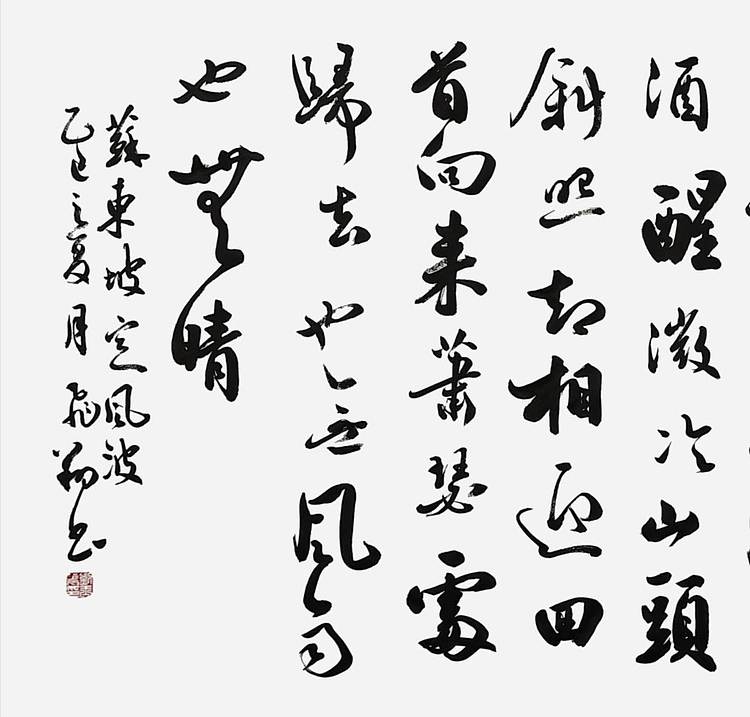 酒醒微冷山頭
斜照却相迎回
首向來蕭瑟處
歸去也無風雨
也無晴
蘇東坡定風波
乙巳之夏月飛翔書